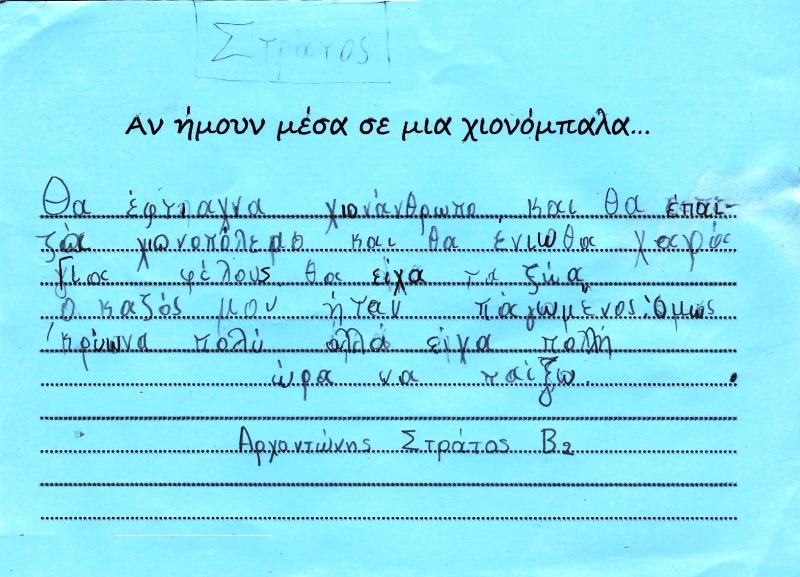 Στρατος
Αν ήμουν μέσα σε μια χιονόμπαλα...
Θα έφτιαγνα χιονάνθρωπο και θα έπαι-
ζα χιονοπόλεμο και θα ένιωθα
Για φέλους θα είχα τα ζώα
ο καζός μου ήταν παγωμένος. Όμως
κρύωνα πολύ αλλά είχα πολλή
ώρα να παίξω.
Αρχοντώνης Στράτος Β2